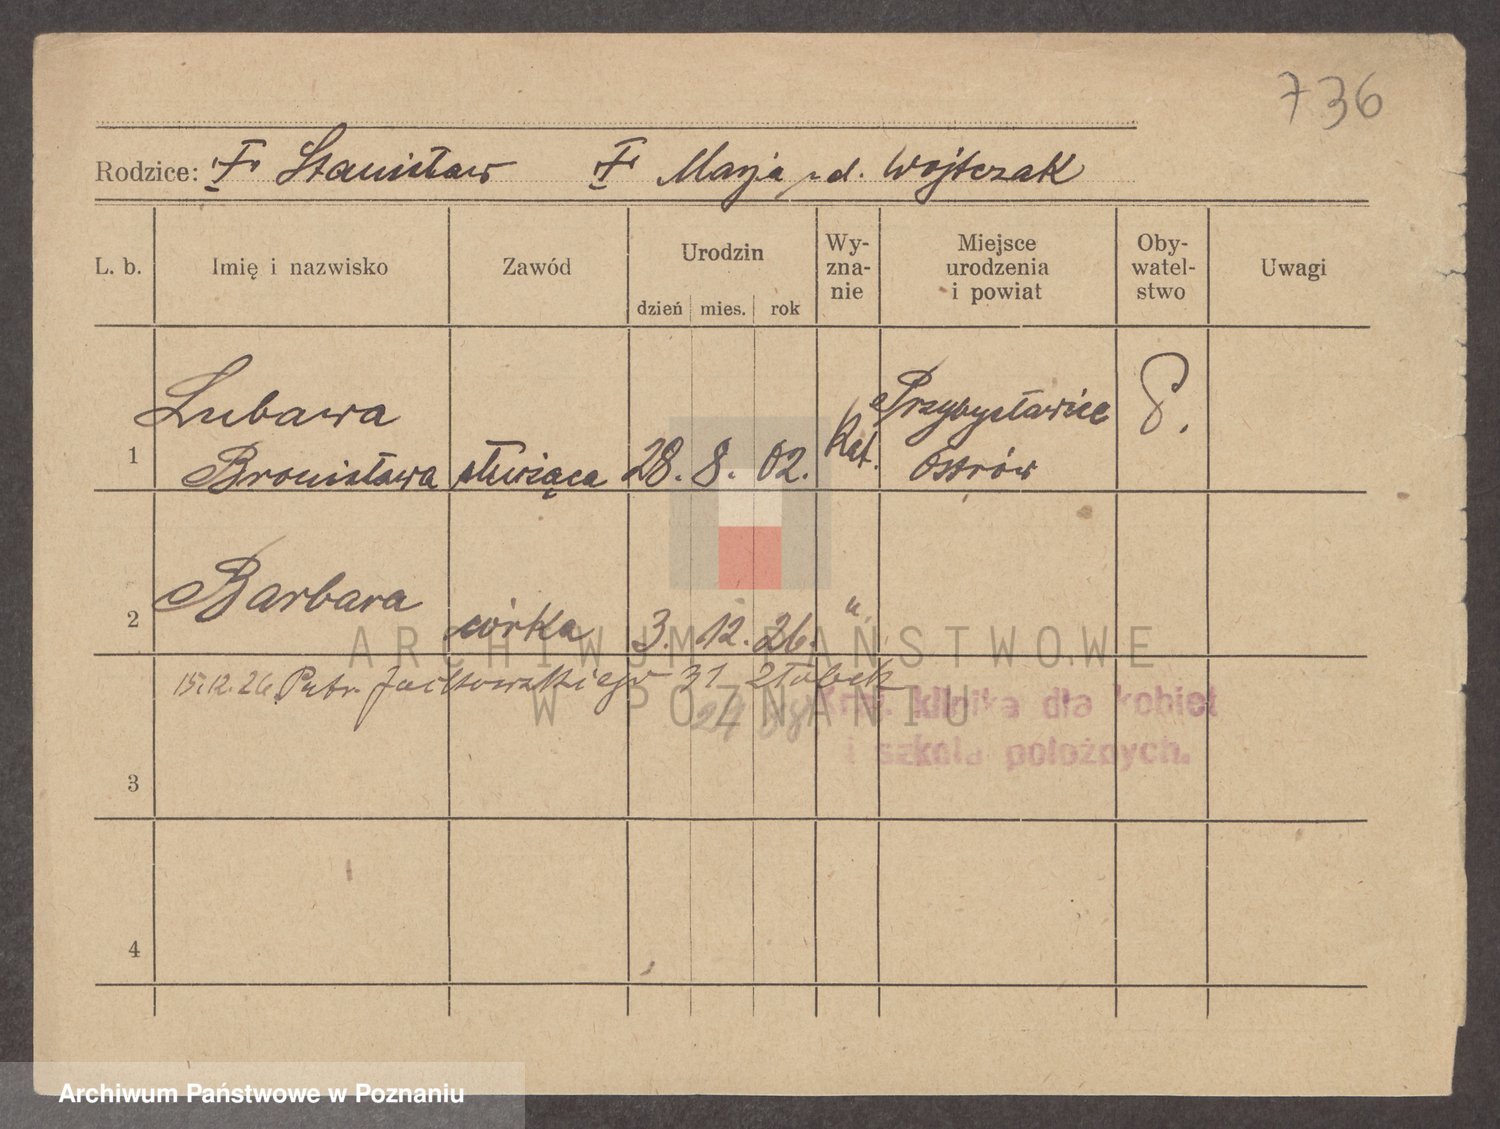 736
Rodzice: Stanisław Marja z d. Wojtczak
L. b. Imię i nazwisko Zawód Urodzin dzień mies. rok Wy-zna-nie Miejsce urodzenia i powiat Oby-watel-stwo Uwagi
Lubawa Przybysławice
1 Bronisława służąca 28. 8. 02. Kat. Ostrów P.
Barbara
2 córka 3. 12. 26. "
ARCHIWUM PAŃSTWOWE
15.12.26. Patr. Jackowskiego 31 żłobek
W POZNANIU
Kraj. klinika dla kobiet
i szkoła położnych.
3
4
Archiwum Państwowe w Poznaniu